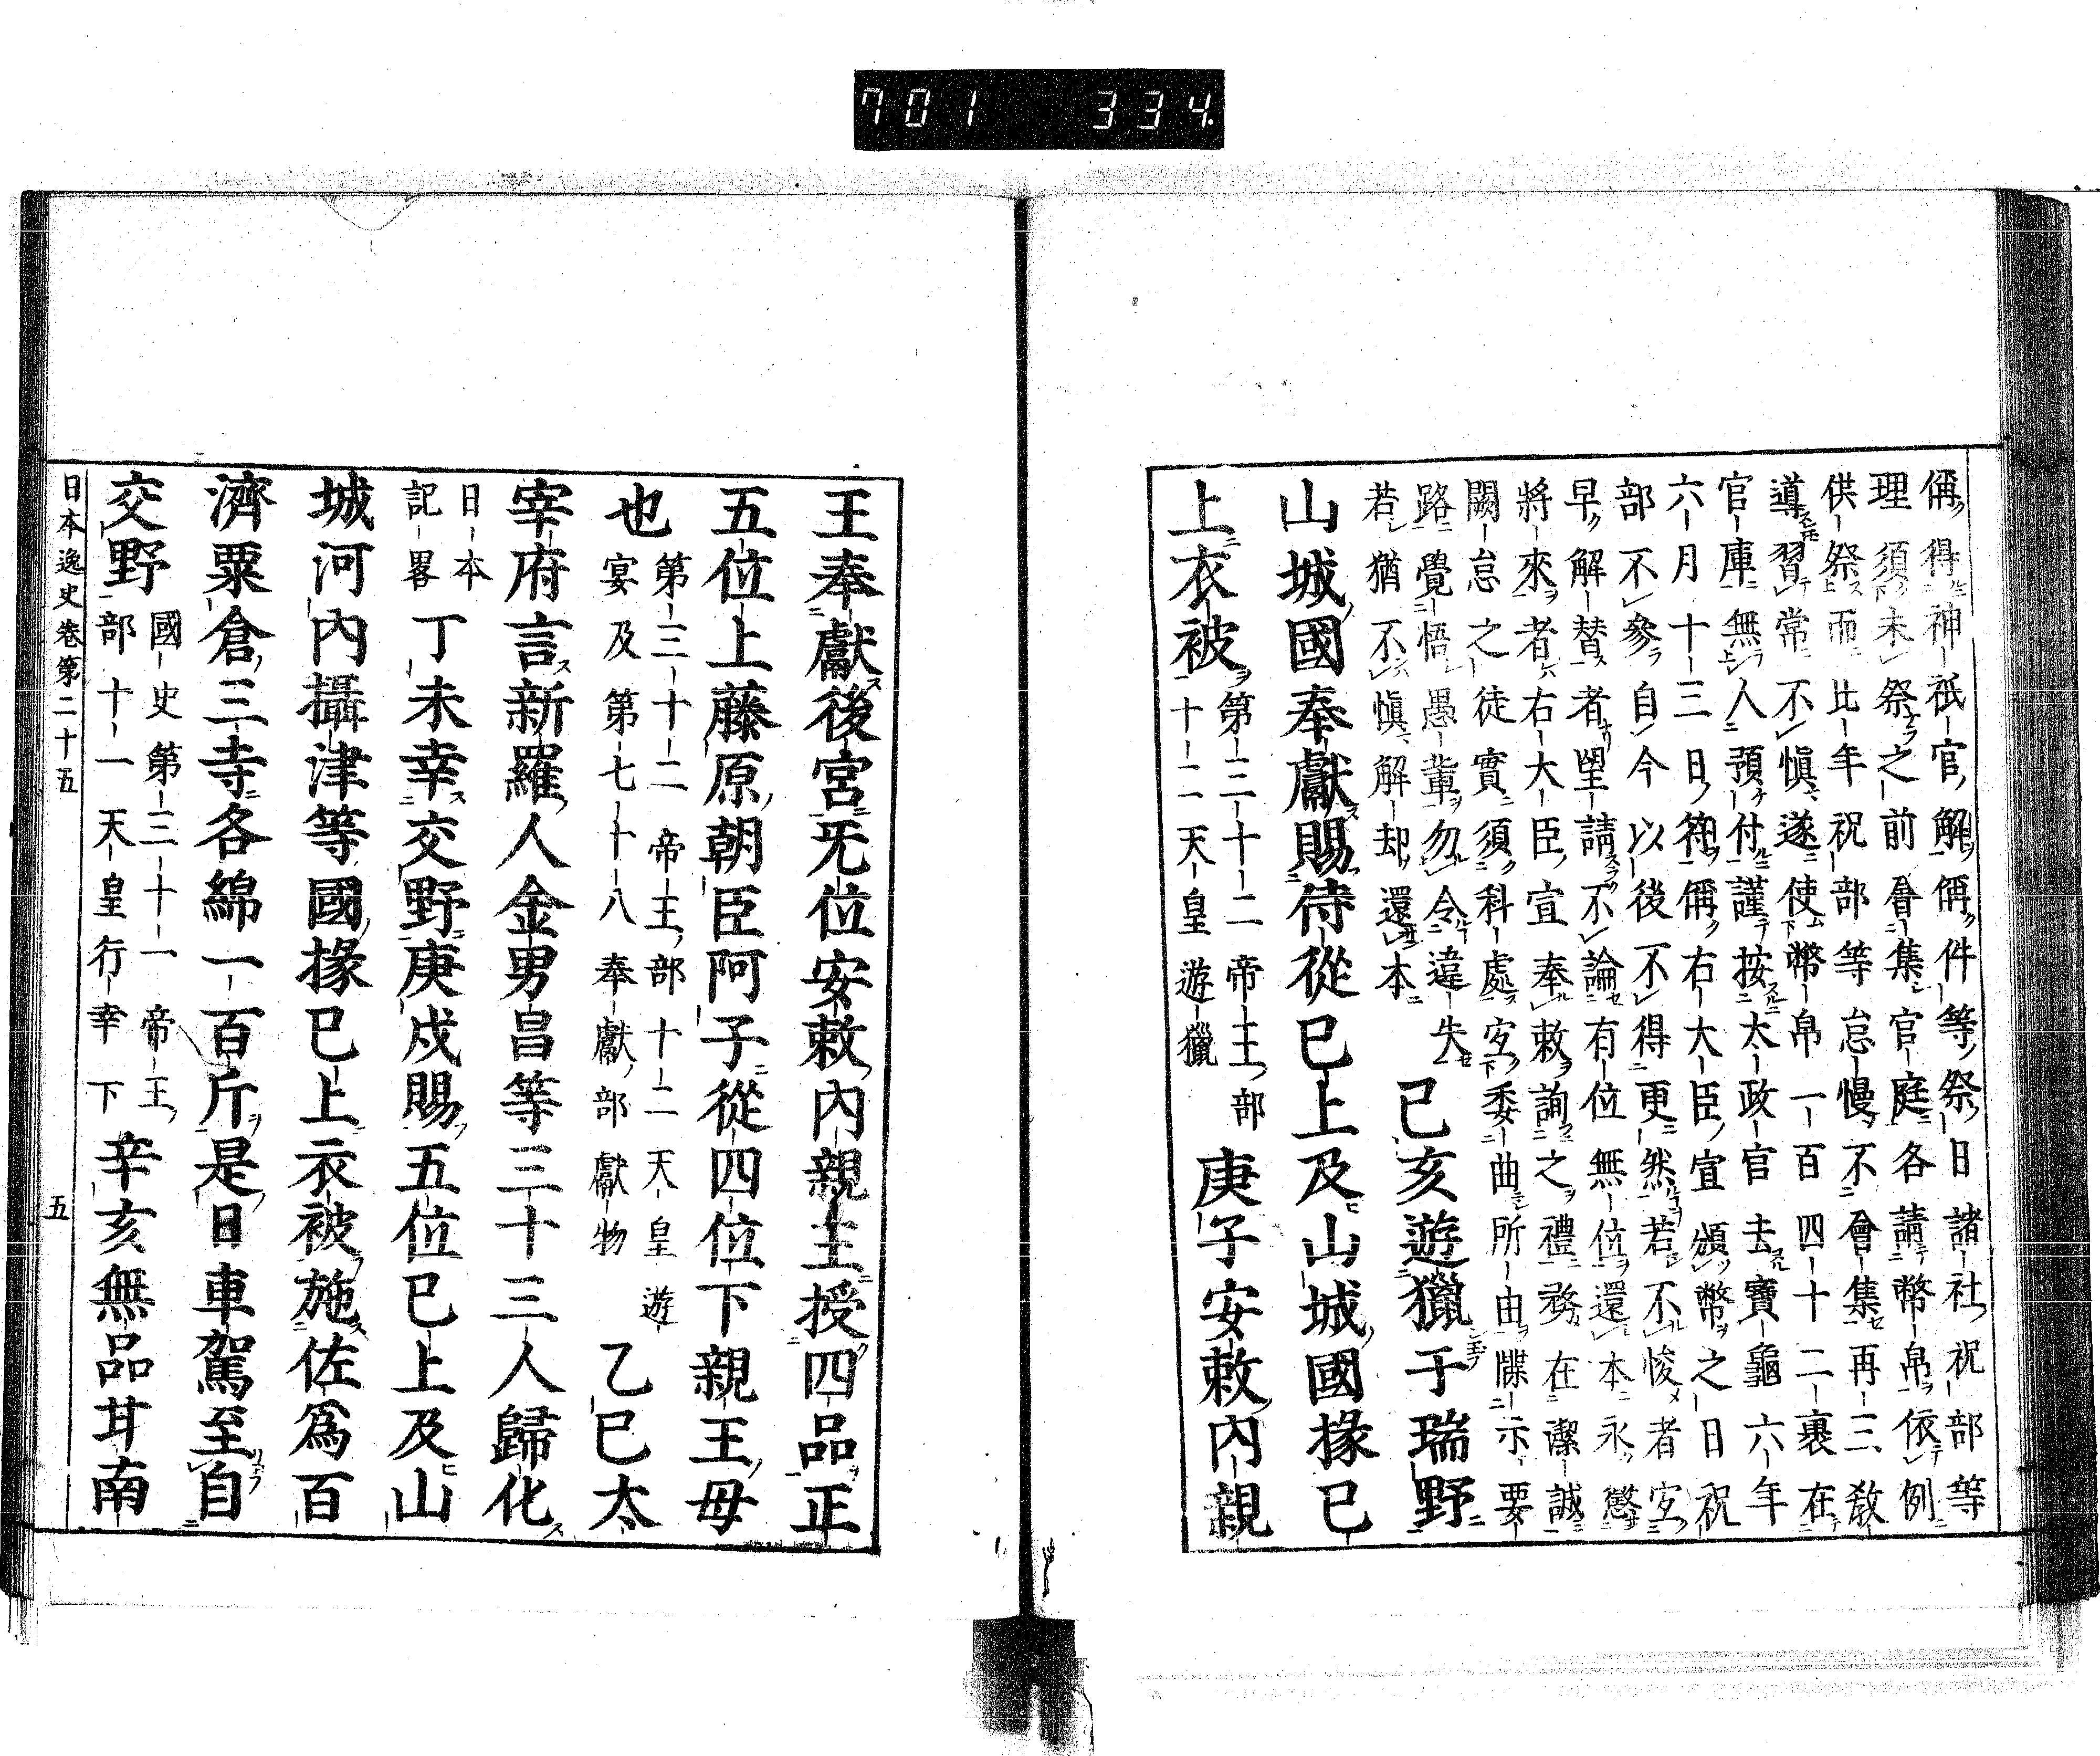 701 334.
偁得神祇官解偁件等祭日諸社祝部等
理須未祭之前會集官庭各請幣帛依例
供祭而比年祝部等怠慢不會集再三敎
導習常不愼遂使幣帛一百四十二裹在
官庫無人預付謹按太政官去寶龜六年
六月十三日符偁右大臣宣頒幣之日祝
部不參自今以後不得更然若不悛者宜
早解替者望請不論有位無位還本永懲
將來者右大臣宣奉敕詢之禮務在潔誠
闕怠之徒實須科處宜委曲所由牒示要
路覺悟愚輩勿令違失
若猶不愼解却還本
己亥遊獵于瑞野
山城國奉獻賜侍從已上及山城國掾已
上衣被
第三十二帝王部
十二天皇遊獵
庚子安敕內親
王奉獻後宮无位安敕內親王授四品正
五位上藤原朝臣阿子從四位下親王母
也
第三十二帝王部十二天皇遊
宴及第七十八奉獻部獻物
乙巳太
宰府言新羅人金男昌等三十三人歸化
日本
記畧
丁未幸交野庚戌賜五位已上及山
城河內攝津等國掾已上衣被施佐爲百
濟粟倉三寺各綿一百斤是日車駕至自
交野
國史第三十一帝王
部十一天皇行幸下
辛亥無品甘南
日本逸史卷第二十五
五